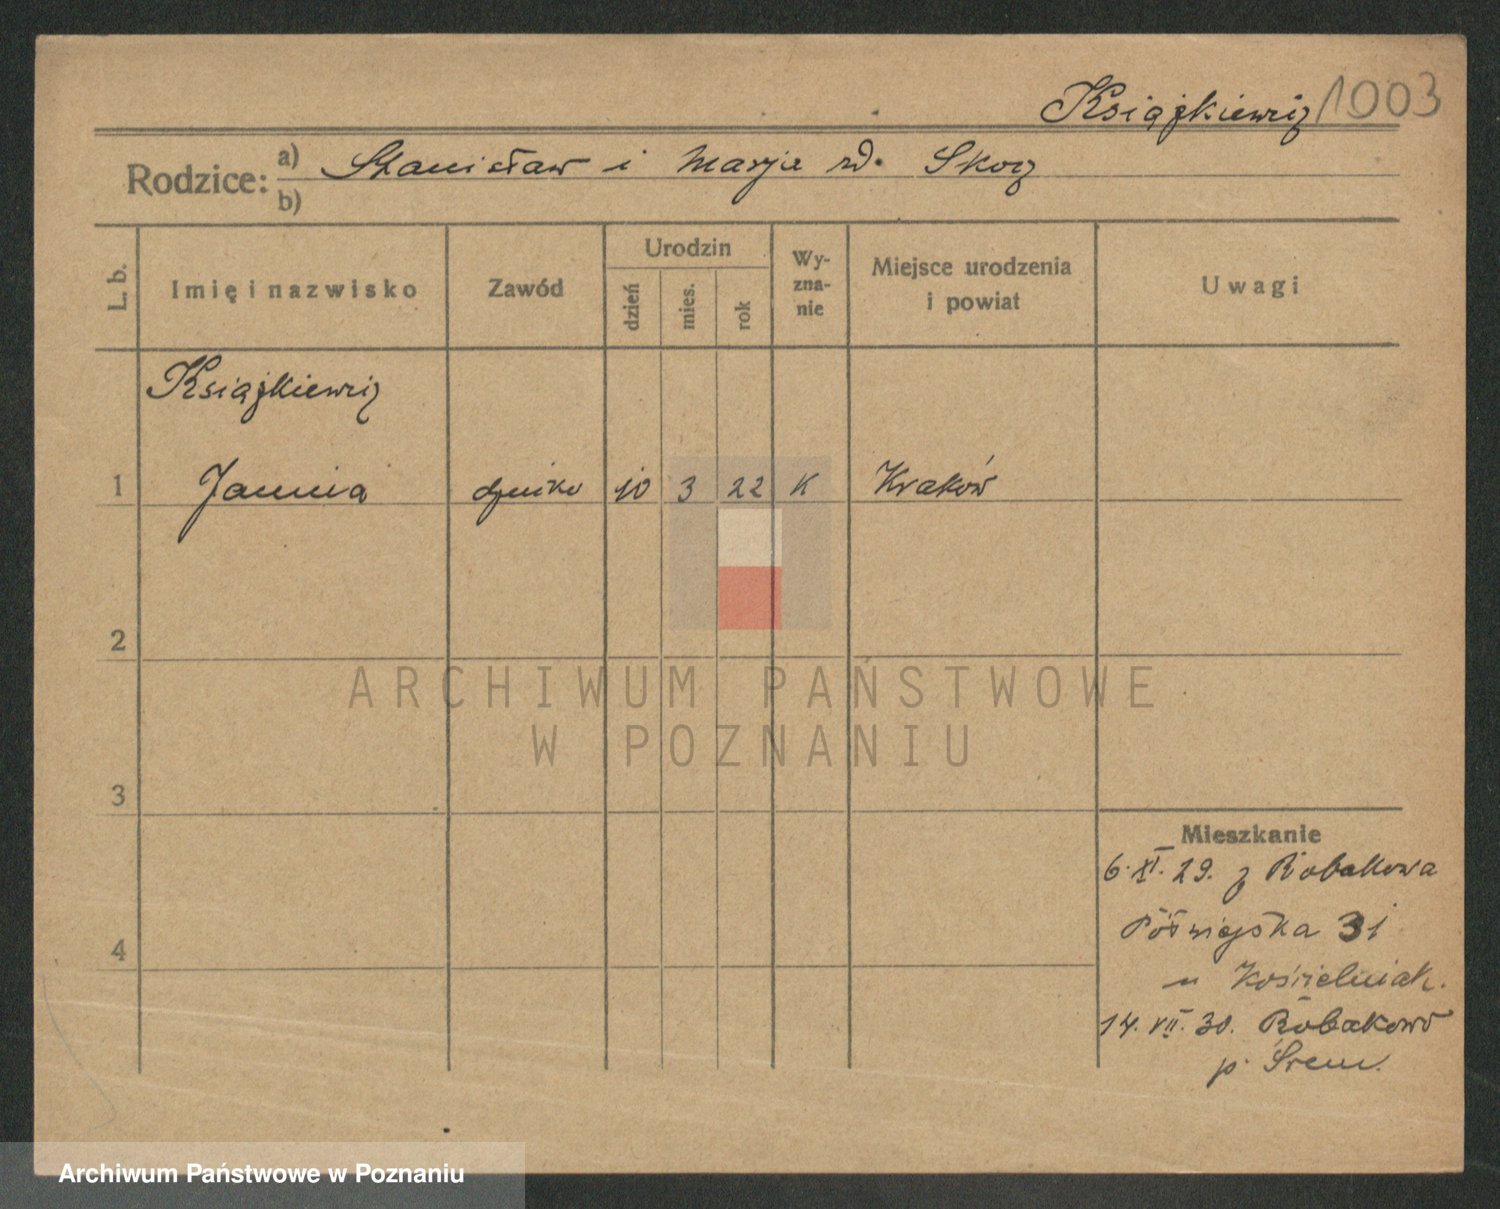 Książkiewicz 1003
Rodzice: a) Stanisław i Marja rd. Skocz
b)
L. b.
Imię i nazwisko
Zawód
Urodzin
dzień
mies.
rok
Wy-
zna-
nie
Miejsce urodzenia
i powiat
Uwagi
Książkiewicz
1 Janina 10 3 22 K Kraków
2
3
4
Mieszkanie
6. XI. 29. z Robakowa
Półwiejska 31
u Kościelniak.
14. VII. 30. Robakowo
p. Śrem.
ARCHIWUM PAŃSTWOWE
W POZNANIU
Archiwum Państwowe w Poznaniu